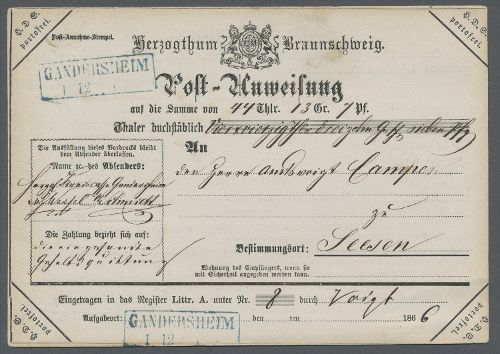 H. D. S. portofrei.
H. D. S. portofrei.
Post-Annahme-Stempel.
Herzogthum Braunschweig.
GANDERSHEIM
1 12
Post-Anweisung
auf die Summe von 44 Thlr. 13 Gr. 7 Pf.
Thaler buchstäblich Vier vierzig Thlr dreizehn Gr sieben Pf
Die Ausfüllung dieses Vordrucks bleibt
dem Absender überlassen.
Name ꝛc. des Absenders:
Gandersheim
Die Zahlung bezieht sich auf:
die eingesandte
Gehaltsquittung
An
den Herrn Amtsvoigt Campe
zu
Bestimmungsort: Seesen
Wohnung des Empfängers, wenn sie
mit Sicherheit angegeben werden kann.
Eingetragen in das Register Littr. A. unter Nr. 8 durch Voigt
Aufgabeort: GANDERSHEIM den ten 186 6
1 12
H. D. S. portofrei.
H. D. S. portofrei.